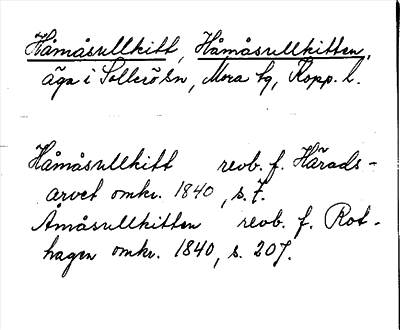 Håmåsullkitt, Håmåsullkitten,
äga i Sollerö sn, Mora tg, Kopp. l.
Håmåsullkitt revb. f. Härads-
arvet omkr. 1840, s. 7.
Amåsullkitten revb. f. Rot-
hagen omkr. 1840, s. 207.